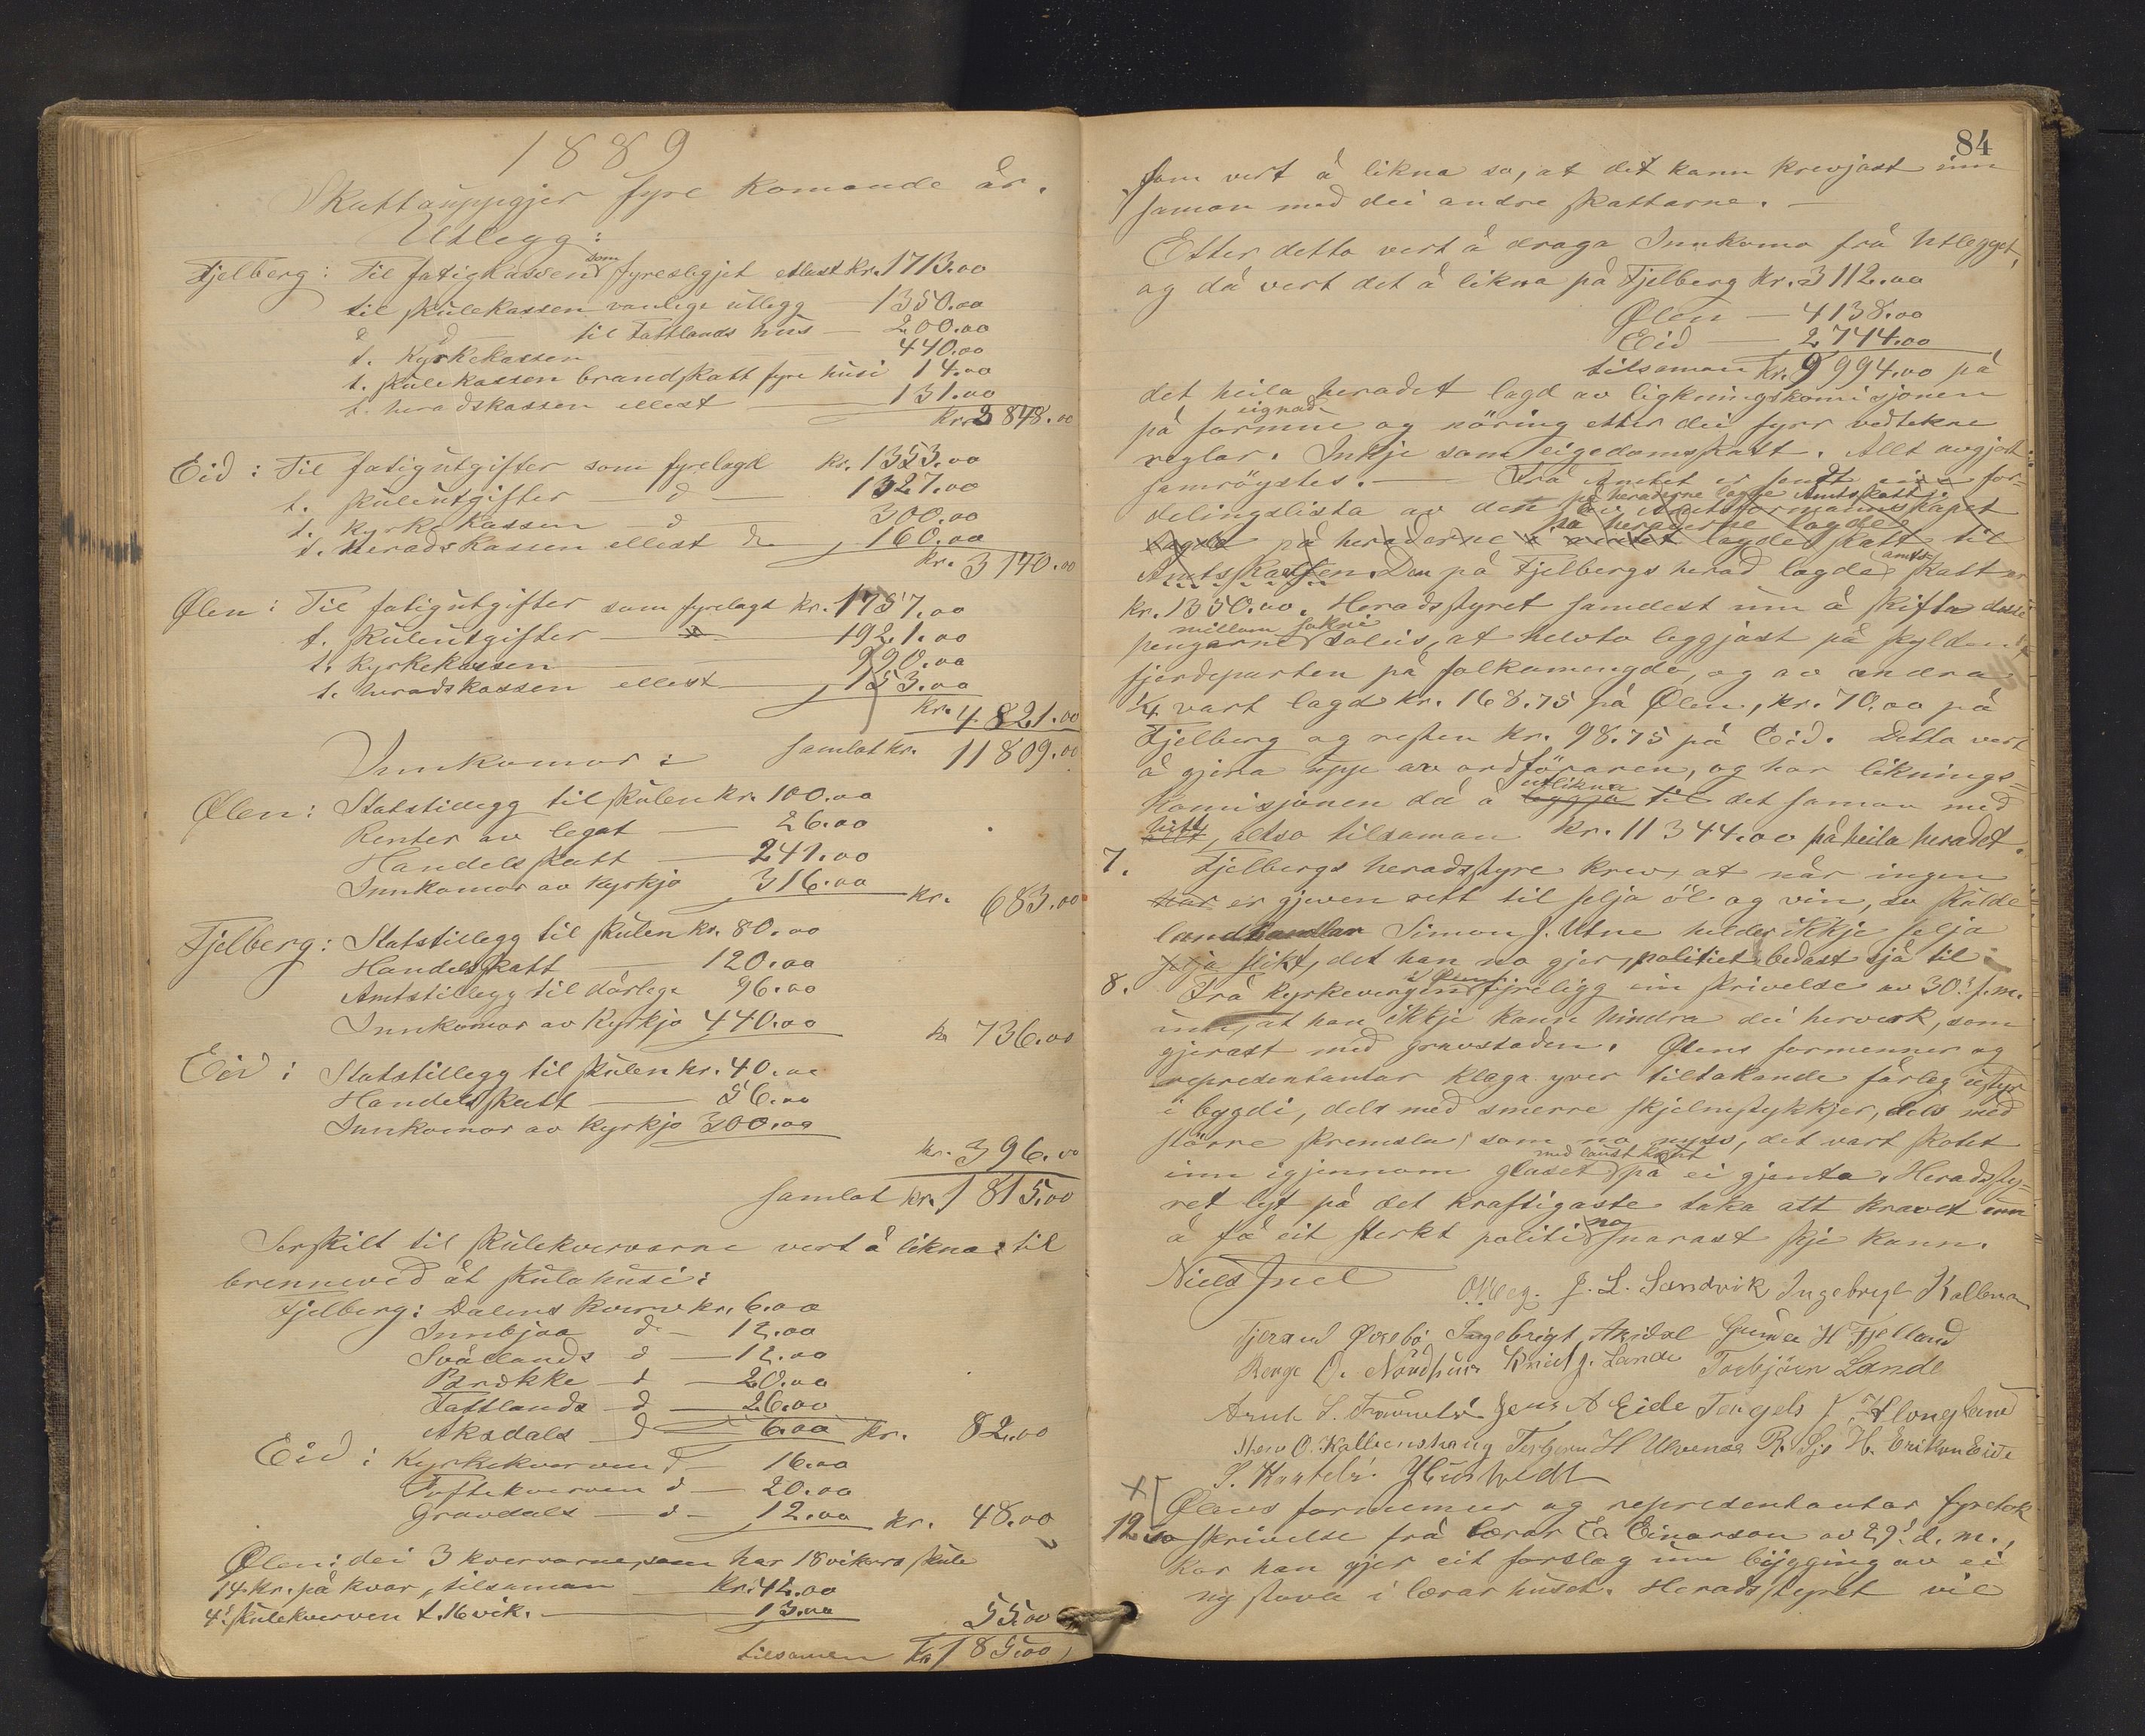 1889
Skattauppgjer fyre komande år.
Utlegg:
Fjelberg: Til fatigkassen som fyresligjet etlast kr. 1713.00
til skulekassen vanlige utlegg 1350.00
d d til Tattlands hus — 200.00
t. Kyrkekassen 440.00
t. skulekassen brandskatt fyre husi 14.00
t. heradskassen ellest 131.00
kr. 3848.00
Eid: Til fatigutgifter som fyrelagd kr. 1353.00
t. skuleutgifter — d — 1327.00
t. kyrkekassen — d 300.00
t. heradskassen ellest d 160.00
kr. 3140.00
Ølen: Til fatigutgifter som fyrelagt kr. 1757.00
t. skuleutgifter 1921.00
t. kyrkekassen 990.00
t. heradskassen ellest 153.00
kr. 4821.00
Innkomor: samlat kr. 11809.00
Ølen: Statstillegg til skulen kr. 100.00
Renter av legat — 26.00
Handelsskatt — 241.00
Innkomor av kyrkja 316.00 kr. 683.00
Fjelberg: Statstillegg til skulen kr. 80.00
Handelsskatt — 120.00
Amtstillegg til dårlege 96.00
Innkomor av kyrkja 440.00 kr 736.00
Eid: Statstillegg til skulen kr. 40.00
Handelsskatt — 56.00
Innkomor av kyrkja 300.00
kr. 396.00
samlat kr. 1815.00
Serskilt til skulekvervarne vert å likna til
brennevid åt skulahusi:
Fjelberg: Dalens kverv kr. 6.00
Innbjoa d — 12.00
Svållands d — 12.00
d — 20.00
Tattlands d — 26.00
Aksdals d 6.00 kr. 82.00
Eid: Kyrkekverven d — 16.00
Toftekverven d — 20.00
Gravdals — d — 12.00 kr. 48.00
Ølen: dei 3 kvervarne, som har 18 vikors skule
14 kr. på kvar, tilsaman kr. 42.00
4' skulekverven t. 16 vik. — 13.00 55.00
tilsamen kr 185.00
84
som vert å likna so, at det kann krevjast inn
saman med dei andre skattarne. —
Etter detta vert å draga Innkoma frå Utlegget,
og då vert det å likna på Fjelberg kr. 3112.00
Ølen — 4138.00
Eid — 2744.00
tilsaman kr. 9994.00 på
det heila heradet lagd av ligkningskomisjonen
på formue eignad og näring etter dei fyrr vedtekne
reglar. Inkje som eigedomsskatt. Allt avgjort
samröystes. — Frå Amtet er sendt ein for-
delingslista av den av Amtsformannskapet
på heraderne lagde Amtsskatt
på heraderne lagde
lagde på heraderne i amtet lagde skatt til
Amtskassen. Den på Fjelbergs herad lagde amts-skatt er
kr. 1350.00. Heradsstyret samdest um å skifta desse
pengarne millom sokni soleis, at helvta leggjast på skylden,
fjordeparten på folkamengde, og av andra
1/4 vart lagd kr. 168.75 på Ølen, kr. 70.00 på
Fjelberg og resten kr. 98.75 på Eid. Detta vert
å gjera uppe av ordföraren, og har liknings=
komisjonen då å utlikna leggja til det saman med
hitt allt, altso tilsaman kr. 11344.00 på heila heradet.
7. Fjelbergs heradsstyre krev, at når ingen
har er gjeven rett til selja öl og vin, so skulde
landhandlar Simon J. Utne heller ikkje selja
selja slikt, det han no gjer, politiet bedast sjå til
8. Frå kyrkeverjen i Ølen fyreligg ein skrivelse av 30' f.m.
um, at han ikkje kann hindra dei herverk, som
gjerast med gravstaden. Ølens formenner og
representantar klaga yver tiltakande fårleg ustyr
i bygdi, dels med smerre skjelmstykkjer, dels med
större skremsla, som no nyss, det vart skotet
inn igjennom glaset med laust krut på ei gjenta. Heradsty=
ret lyt på det kraftigaste taka att kravet um
å få eit sterkt politi no snarast skje kann.
Niels Juel O. Vaag. J. L. Sandvik Ingebrigt Kallevan
Tjerand Øvrebø Ingebrigt Aksdal Gunder H Fjelland
Benge O. Nordhuus Knud J. Lande Torbjörn Lande
Arnt L. Jens A Eide Tengels J. Haugland
O. Kallevashaug Torbjørn H R. Sjo H. Eriksen Eide
S.
x Ølens formenner og representantar fyretok
12 so skrivelse frå lærar E. Einarson av 29' d. m.,
kor han gjer eit forslag um bygging av ei
ny stova i lærarhuset. Heradsstyret vil